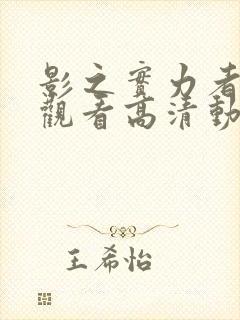 影之實力者
觀看高清動
王希怡